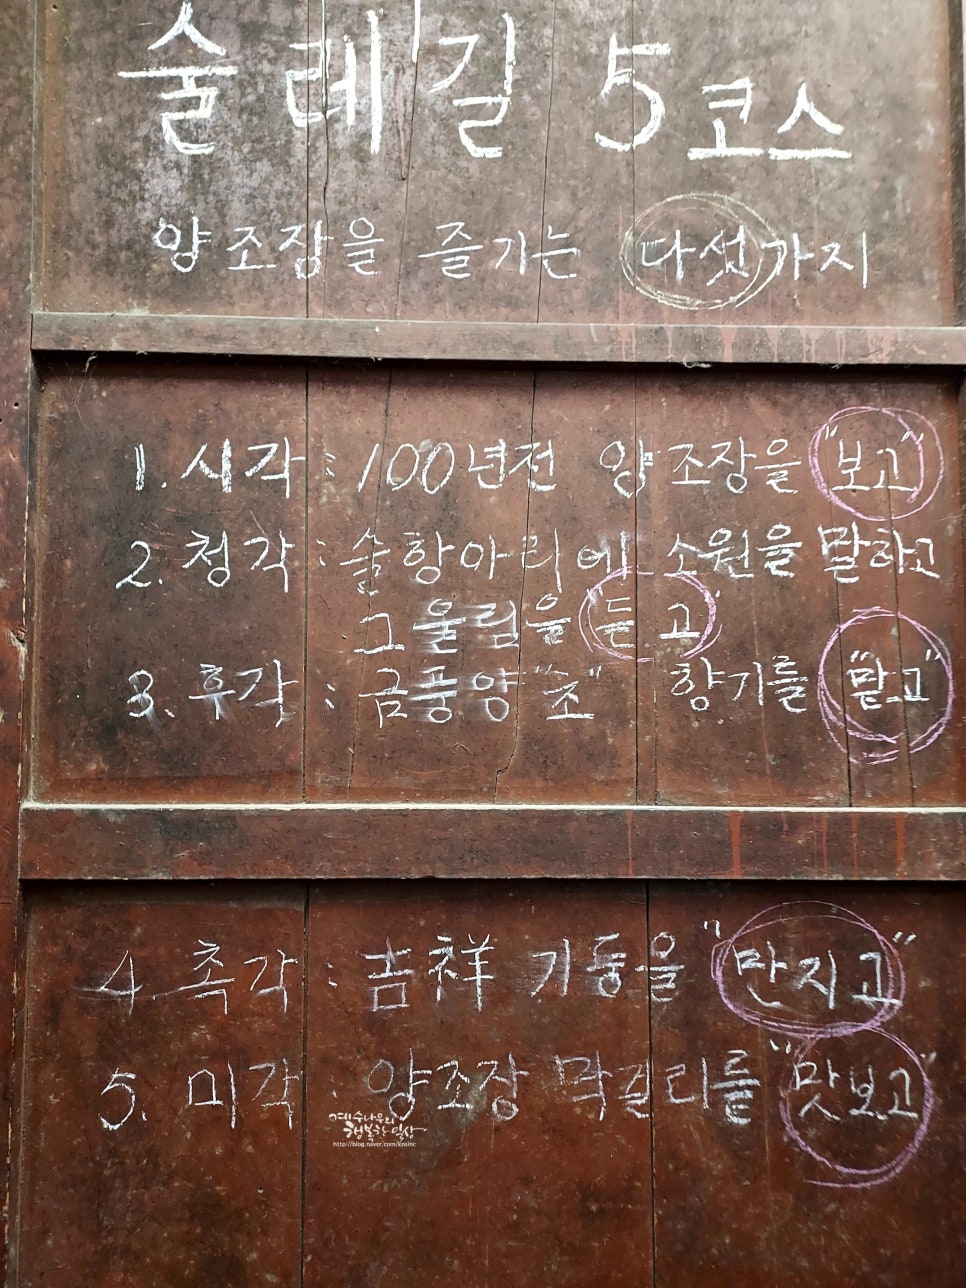 술레길 5코스
양조장을 즐기는 다섯가지
1. 시각 : 100년전 양조장을 "보고"
2. 청각 : 술항아리에 소원을 말하고
그 울림을 "듣고"
3. 후각 : 금풍양"조" 향기를 "맡고"
4. 촉각 : 吉祥 기둥을 "만지고"
5. 미각 : 양조장 막걸리를 "맛보고"
예수나무의
행복한 일상
http://blog.naver.com/knsinc